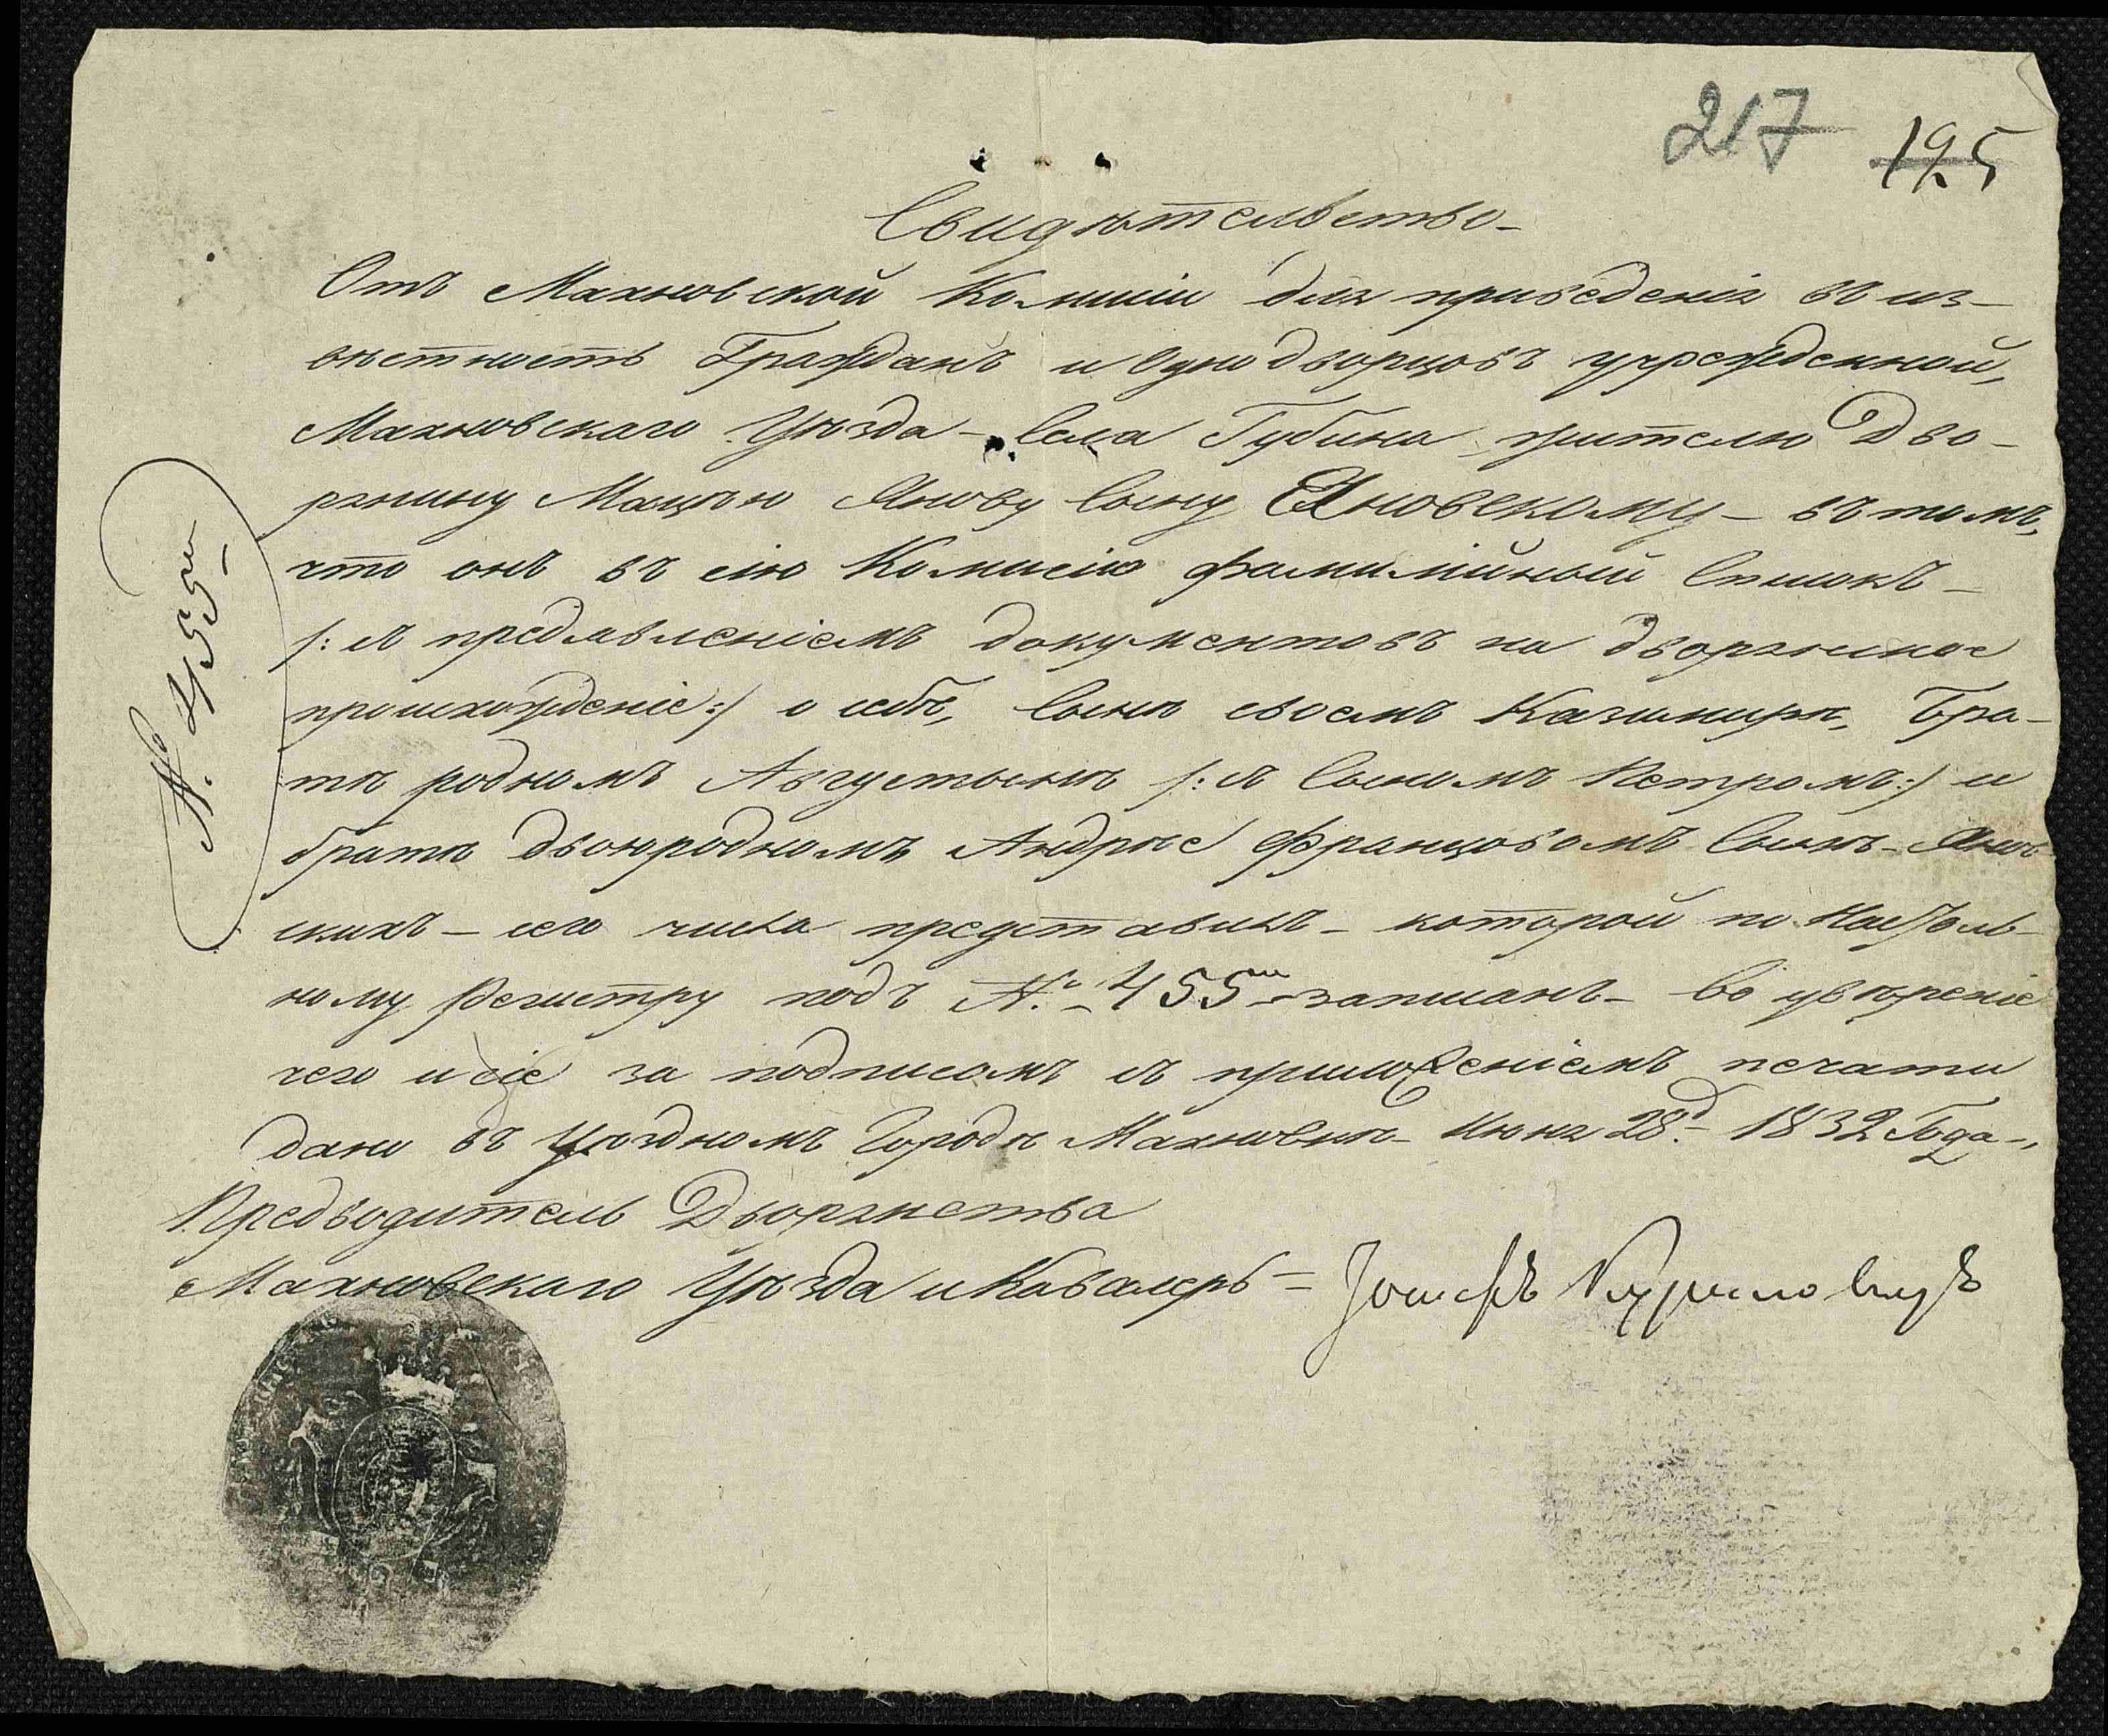 217 195
Свидѣтельство-
Отъ Махновской Комисіи для приведенія въ из-
вѣстность Гражданъ и Однодворцовъ учрежденной,
Махновскаго Уѣзда - Села Губина жителю Дво-
рянину Мацѣю Янову Сыну Яновскому - въ томъ,
что онъ въ сію Комисію фамилійный Списокъ -
/: съ предъявленіемъ документовъ на дворянское
происхожденіе :/ о себѣ, Сынѣ своемъ Казимирѣ, Бра-
тѣ родномъ Августынѣ /: съ Сыномъ Петромъ :/ и
братѣ двоюродномъ Андрѣе Францовомъ Сынѣ - Янов
скихъ - сего числа представилъ - которой по Настоль-
ному Регистру подъ №. 455м - записанъ - Во увѣреніе
чего и сіе за подписомъ съ приложеніемъ печати
дано въ Уѣздномъ Городѣ Махновкѣ Июня 28д. 1832 Года -,
Предводитель Дворянства
Махновскаго Уѣзда и Кавалеръ = Іосифъ
№. 455м